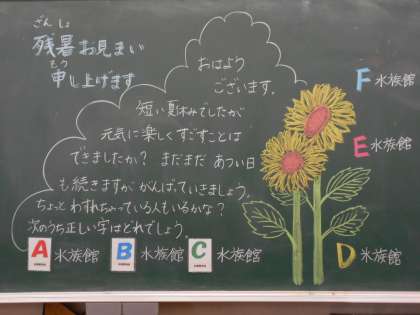 ざんしょ
残暑お見まい
もう
申し上げます
おはよう
ございます。
短い夏休みでしたが
元気に楽しくすごすことは
できましたか？ まだまだ あつい日
も続きますが がんばっていきましょう。
ちょっと わすれちゃっている人もいるかな？
次のうち正しい字はどれでしょう。
A 水族館 B 水族館 C 水族館
D 水族館
E 水族館
F 水族館